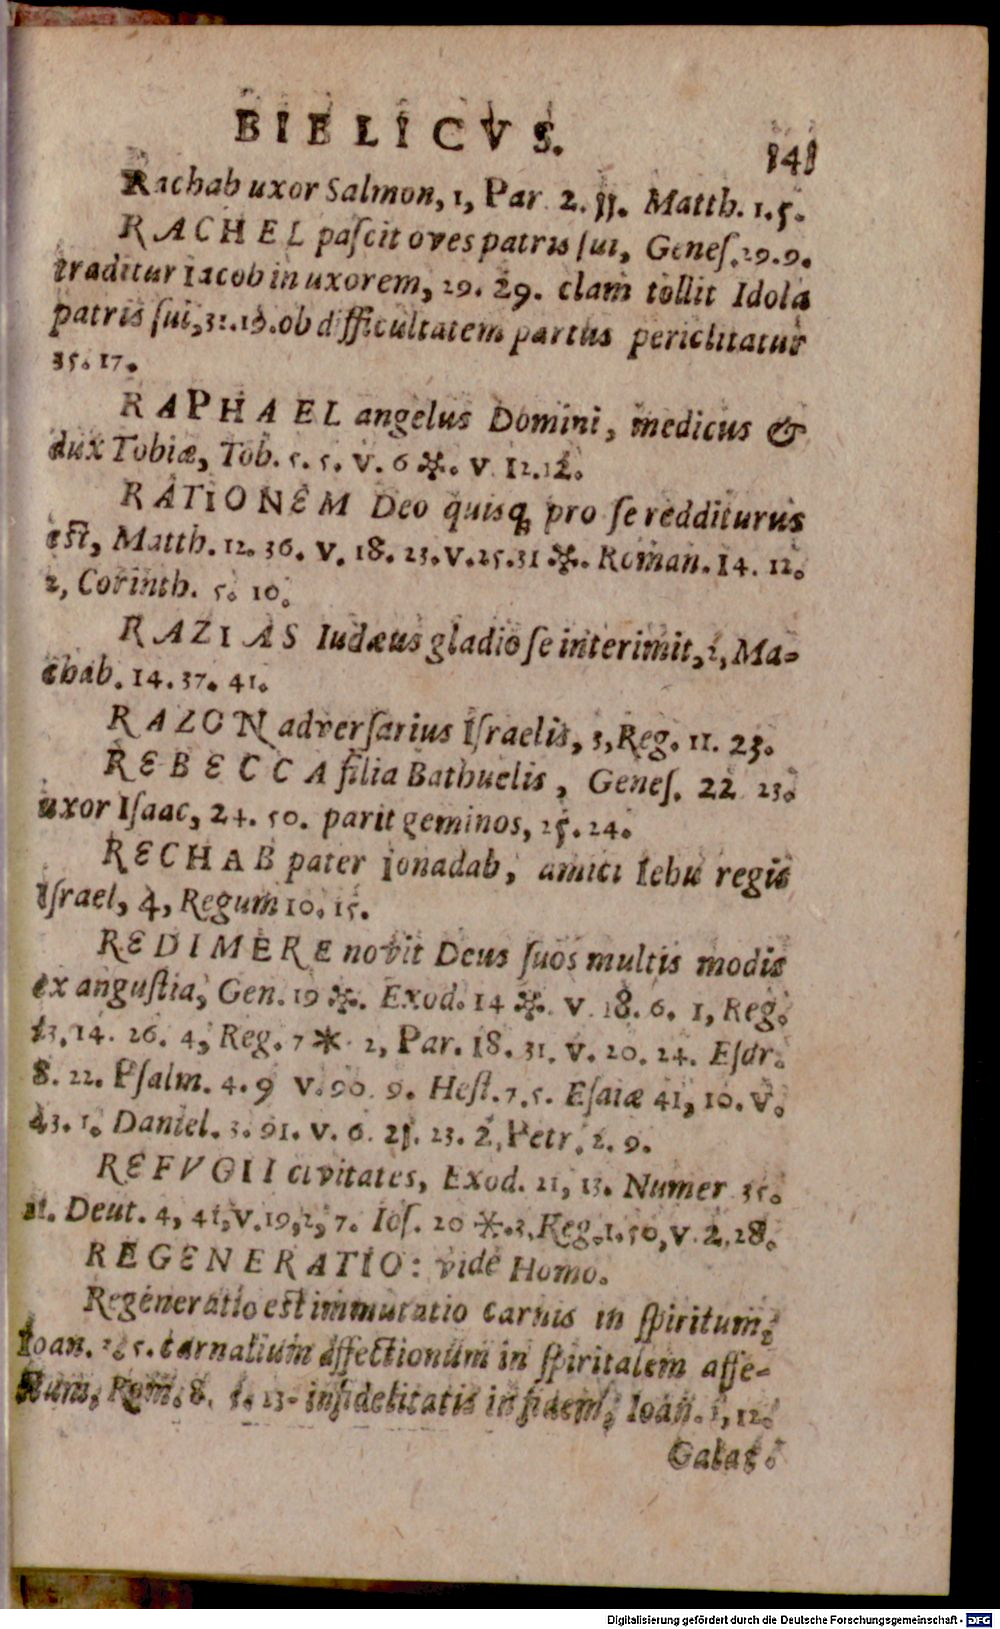 BIBLICVS.
141
Rachab uxor Salmon, 1, Par. 2. 11. Matth. 1. 5.
RACHEL paſcit oves patris ſui, Geneſ. 29. 9.
traditur Iacob in uxorem, 29. 29. clam tollit Idola
patris ſui, 31. 19. ob difficultatem partus periclitatur
35. 17.
RAPHAEL angelus Domini, medicus &
dux Tobiæ, Tob. 5. 5. v. 6 *. v. 12. 12.
RATIONEM Deo quisq; pro ſe redditurus
est, Matth. 12. 36. v. 18. 23. v. 25. 31 *. Roman. 14. 12.
2, Corinth. 5. 10.
RAZIAS Iudæus gladio ſe interimit, 2, Ma-
chab. 14. 37. 41.
RAZON adverſarius Iſraelis, 3, Reg. 11. 23.
REBECCA filia Bathuelis, Geneſ. 22 23.
uxor Iſaac, 24. 50. parit geminos, 25. 24.
RECHAB pater Jonadab, amici Iehu regis
Iſrael, 4, Regum 10. 15.
REDIMERE novit Deus ſuos multis modis
ex anguſtia, Gen. 19 *. Exod. 14 *. v. 18. 6. 1, Reg.
23. 14. 26. 4, Reg. 7 * 2, Par. 18. 31. v. 20. 24. Eſdr.
8. 22. Pſalm. 4. 9 v. 90. 9. Heſt. 7. 5. Eſaiæ 41, 10. v.
43. 1. Daniel. 3. 91. v. 6. 21. 23. 2, Petr. 2. 9.
REFVGII civitates, Exod. 21, 13. Numer. 35.
11. Deut. 4, 41, v. 19, 2, 7. Ioſ. 20 *. 3, Reg. 1. 50, v. 2. 28.
REGENERATIO: vide Homo.
Regeneratio est immutatio carnis in ſpiritum,
Ioan. 5. carnalium affectionum in ſpiritalem affe-
ctum, Rom. 8. 13. infidelitatis in fidem, Ioan. 1, 12.
Galat.
Digitalisierung gefördert durch die Deutsche Forschungsgemeinschaft - DFG